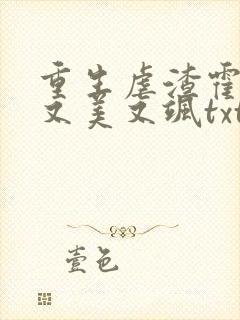 重生虐渣霍
又美又飒txt
壹色